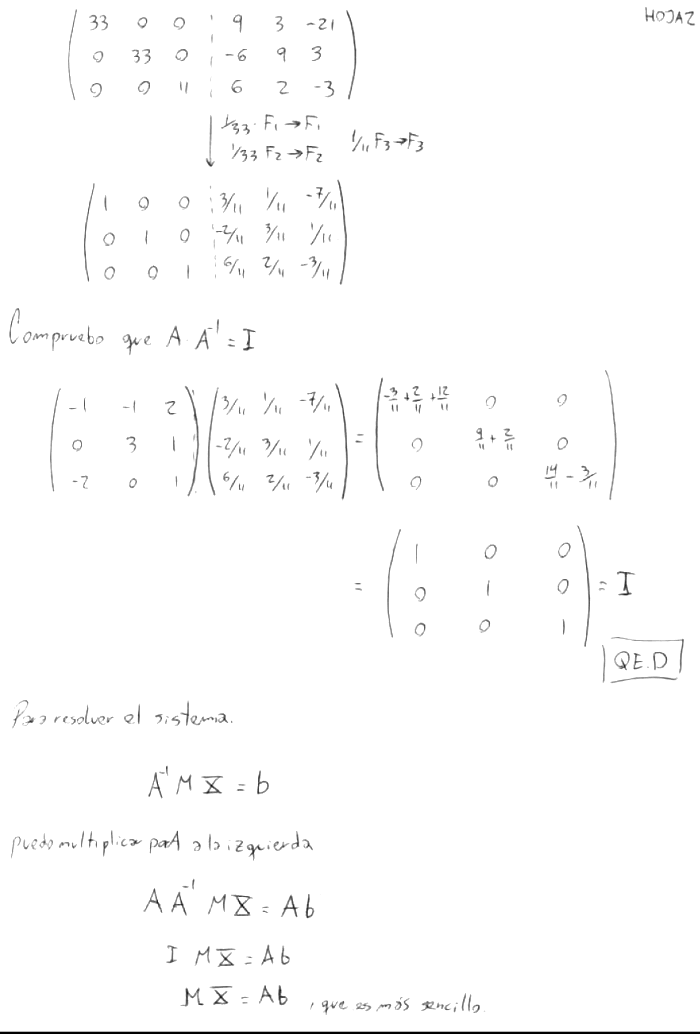 HOJA2
33 0 0 9 3 -21
0 33 0 -6 9 3
0 0 11 6 2 -3
1/33 · F1 → F1
1/33 F2 → F2 1/11 F3 → F3
1 0 0 3/11 1/11 -7/11
0 1 0 -2/11 3/11 1/11
0 0 1 6/11 2/11 -3/11
Compruebo que A · A⁻¹ = I
-1 -1 2 3/11 1/11 -7/11 -3/11 + 2/11 + 12/11 0 0
0 3 1 -2/11 3/11 1/11 = 0 9/11 + 2/11 0
-2 0 1 6/11 2/11 -3/11 0 0 14/11 - 3/11
1 0 0
= 0 1 0 = I
0 0 1
Q.E.D
Para resolver el sistema.
A⁻¹ M X = b
puedo multiplicar por A a la izquierda
A A⁻¹ M X = A b
I M X = A b
M X = A b , que es más sencillo.